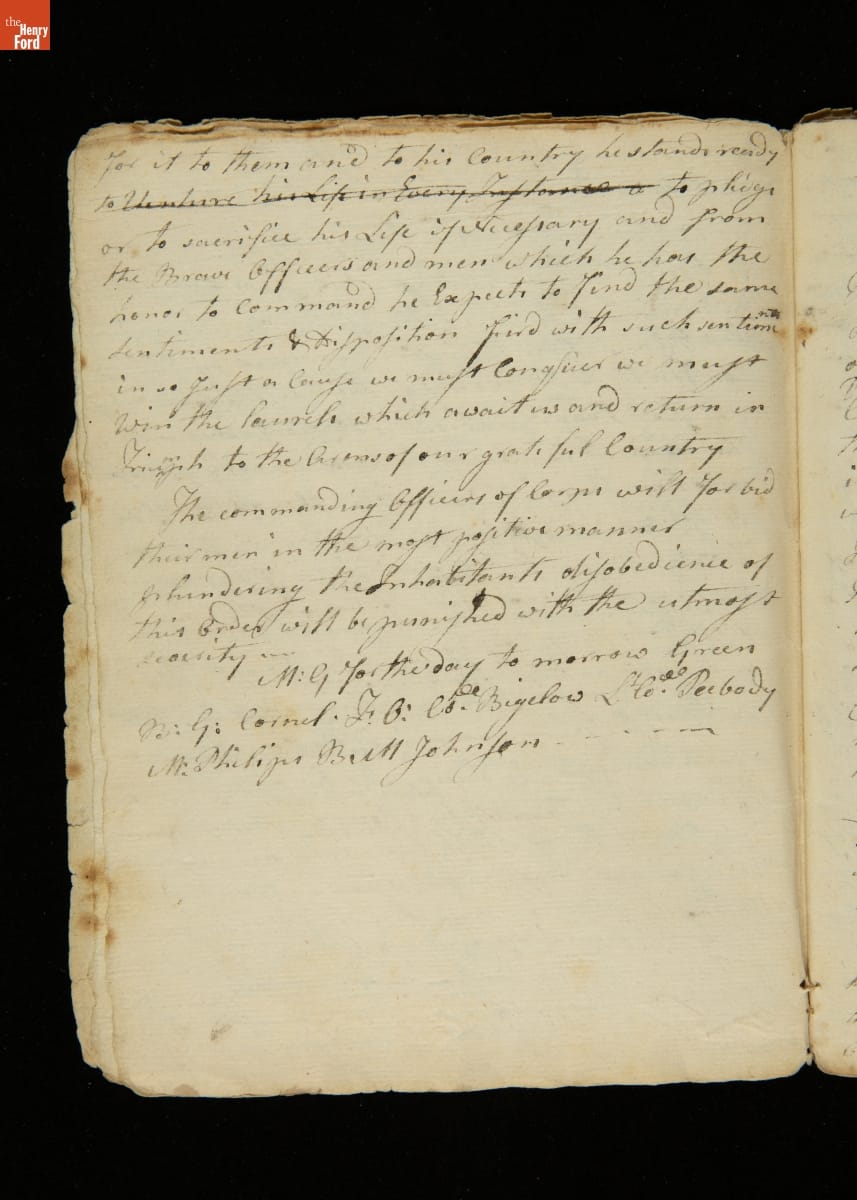 the
Henry
Ford
for it to them and to his Country he stands ready
to Venture his Life in Every Instance a to pledge
or to sacrifice his Life if Necessary and from
the Brave Officers and men which he has the
honor to command he Expects to find the same
sentiments & Disposition fird with such sentiments
in so Just a Cause we must Conquer we must
Win the laurels which await us and return in
Triumph to the Arems of our grateful Country
The commanding Officers of Corps will forbid
their men in the most positive manner
plundering the Inhabitants disobedience of
this Order will be punished with the utmost
severity
M: G for the day to morrow Green
B: G: Cornel. F: O: Co. Bigelow Lt Co. Peebody
M: Philips B: M Johnson